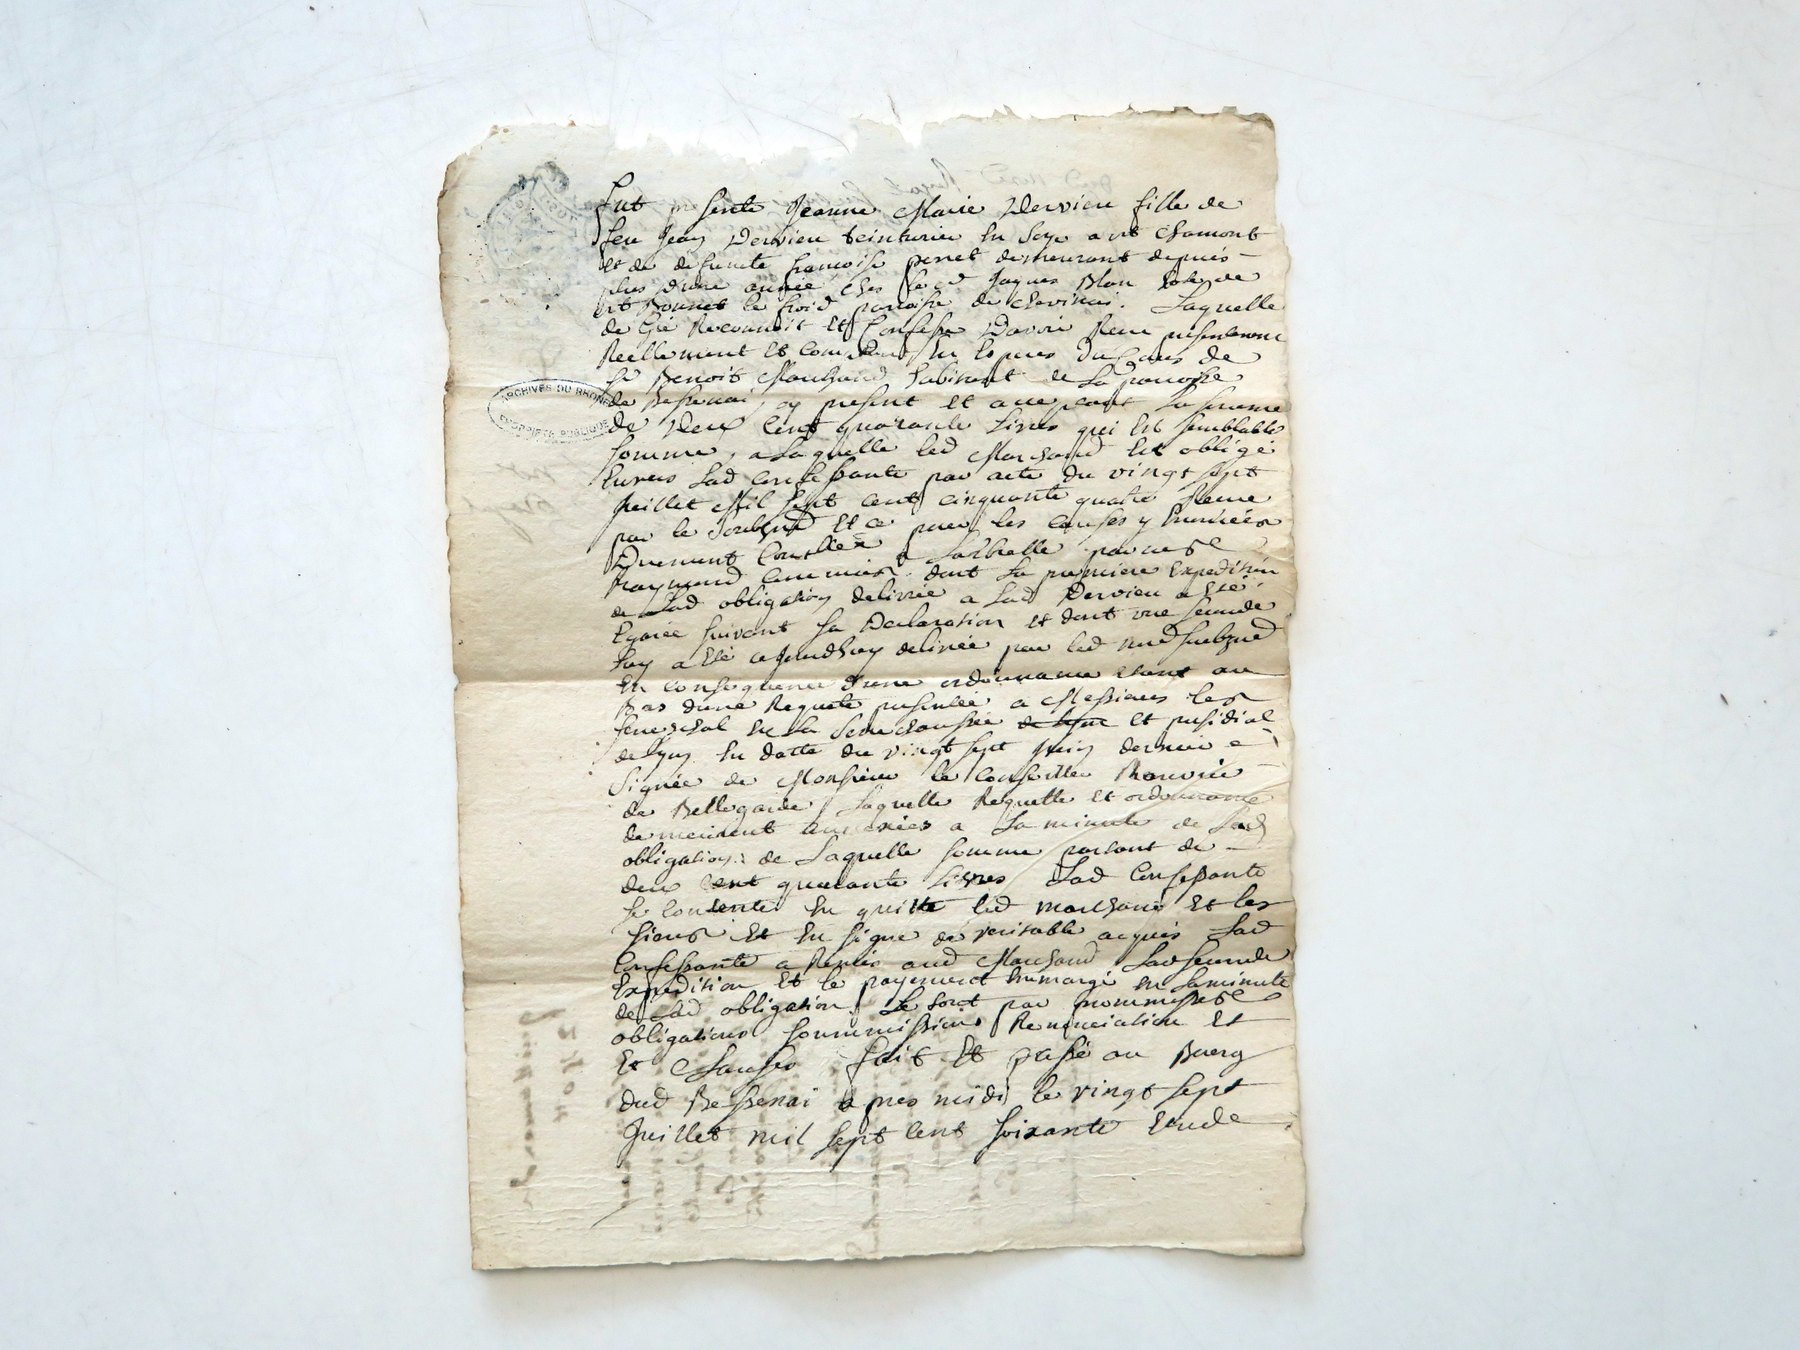 fut presente Jeanne Marie Dervieu fille de
feu Jean Dervieu teinturier en soye a st Chamont
et de defunte francoise perret demeurant depuis
plus d'une année ches le sr Jaques Blan
st Bonnet le froid paroisse de chevinai. Laquelle
de gré Reconnoit et Confesse D'avoir Receu presentement
Reellement et comptant en especes du Cours de
sr Benoit Marchand habitant de La paroisse
de Bessenai, cy present et acceptant La somme
ARCHIVES DU RHONE
de Deux Cent quarante Livres qui est semblable
somme, a Laquelle led Marchand est obligé
Envers Lad Confessante par acte du vingt sept
Juillet Mil sept cent cinquante quatre Receu
par le et ce pour les causes y
Duement Controllé a Larbresle par me
Raymond Commis dont La premiere Expedition
de Lad obligation delivrée a Lad Dervieu a eté
Egarée suivant sa Declaration et dont une seconde
luy a eté cejourdhuy delivrée par led
En consequence d'une ordonnance etant au
Bas d'une Requete presentée a Messieurs les
senechal en La Senechaussée de Lyon et presidial
de Lyon en datte du vingt sept Juin dernier
Signée de Monsieur le Conseiller
de Bellegarde, Laquelle Requette et ordonnance
demeurent annexées a La minute de Lad
obligation: de Laquelle somme partant de
deux cent quarante Livres Lad Confessante
se Contente En quitte led marchand et les
siens Et En signe de veritable acquis Lad
Confessante a Remis aud Marchand Lad seconde
Expedition et le payement Emmargé en La minute
de Lad obligation. Le tout par
obligations soummissions Renonciation et
et Clauses fait et passé au Bourg
dud Bessenai apres midi le vingt sept
Juillet mil sept cent soixante